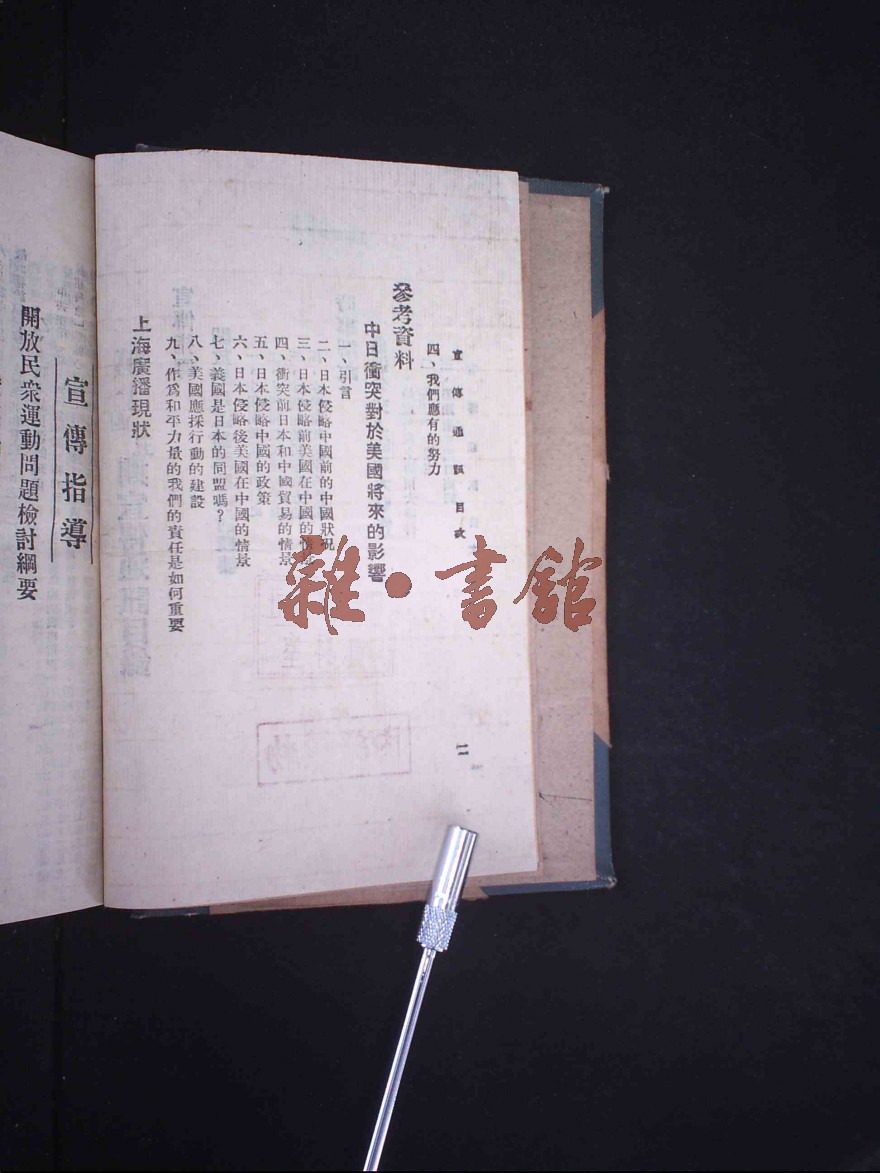 宣傳通訊目次
四、我們應有的努力
參考資料
中日衝突對於美國將來的影響
一、引言
二、日本侵略中國前的中國狀況
三、日本侵略前美國在中國的情景
四、衝突前日本和中國貿易的情景
五、日本侵略中國的政策
六、日本侵略後美國在中國的情景
七、義國是日本的同盟嗎？
八、美國應採行動的建設
九、作爲和平力量的我們的責任是如何重要
上海廣播現狀
二
宣傳指導
開放民衆運動問題檢討綱要
雜·書館